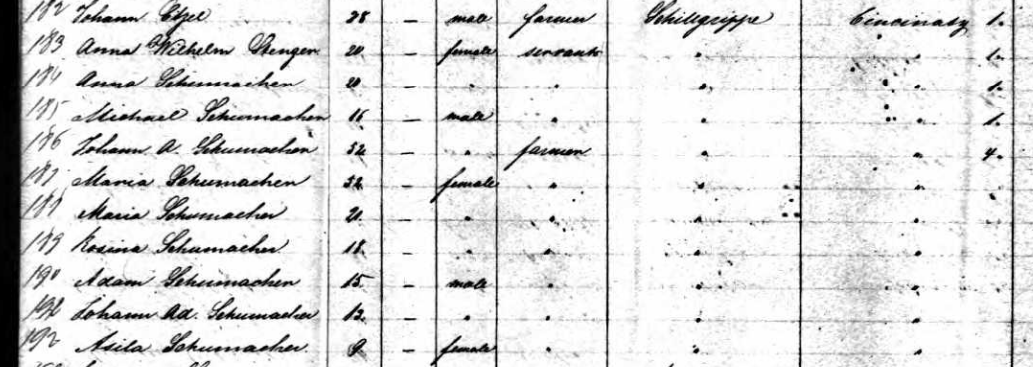 182 Johann Etzel 28 — male farmer Schillgrippe Cincinaty 1.
183 Anna Wilhelm 20 — female servants " " 1.
184 Anna Schumacher 20 — " " " " 1.
185 Michael Schumacher 16 — male " " 1.
186 Johann A Schumacher 52 — " farmer " " 4.
187 Maria Schumacher 52 — female " " "
188 Maria Schumacher 21 — " " " "
189 Rosina Schumacher 18 — " " " "
190 Adam Schumacher 15 — male " " "
191 Johann Ad. Schumacher 12 — " " " "
192 Schumacher 9 — female " " "